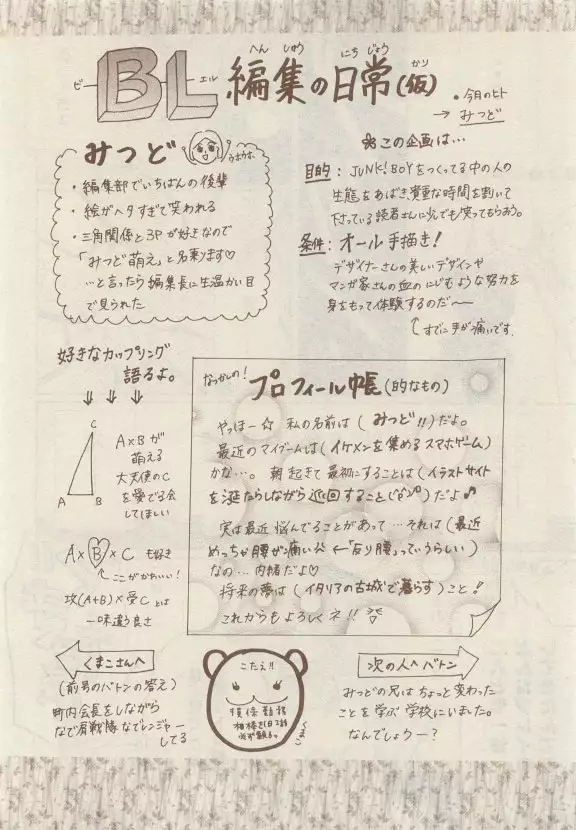 BL編集の日常(仮)
ビー エル
へんしゅう にちじょう かり
・今月のヒト
→ みつど
みつど
・編集部でいちばんの後輩
・絵がヘタすぎて笑われる
・三角関係と3Pが好きなので
「みつど萌え」と名乗ります♡
…と言ったら編集長に生温かい目
で見られた
この企画は…
目的: JUNK!BOYをつくってる中の人の
生態をあばき、貴重な時間を割いて
下さっている読者さんに少しでも笑ってもらおう。
条件: オール手描き!
デザイナーさんの美しいデザインや
マンガ家さんの血のにじむような努力を
身をもって体験するのだー
すでに手が痛いです。
好きなカップリング
語るよ。
C
A B
A×Bが
萌える
大天使のC
を愛でる会
してほしい
A×B×C も好き
ここがかわいい!
攻(A+B)×受C とは
一味違う良さ
なつかしの!
プロフィール帳(的なもの)
やっほー☆ 私の名前は(みつど!!)だよ。
最近のマイブームは(イケメンを集めるスマホゲーム)
かな…。朝起きて最初にすることは(イラストサイト
を涎たらしながら巡回すること)だよ♪
実は最近悩んでることがあって…それは(最近
めっちゃ腰が痛い ←「反り腰」っていうらしい)
なの…内緒だよ♡
将来の夢は(イタリアの古城で暮らす)こと!
これからもよろしくネ!!
くまこさんへ
(前号のバトンの答え)
町内会長をしながら
なで肩戦隊なでレンジャー
してる
こたえ!!
くまこ
次の人へバトン
みつどの兄はちょっと変わった
ことを学ぶ学校にいました。
なんでしょうー?